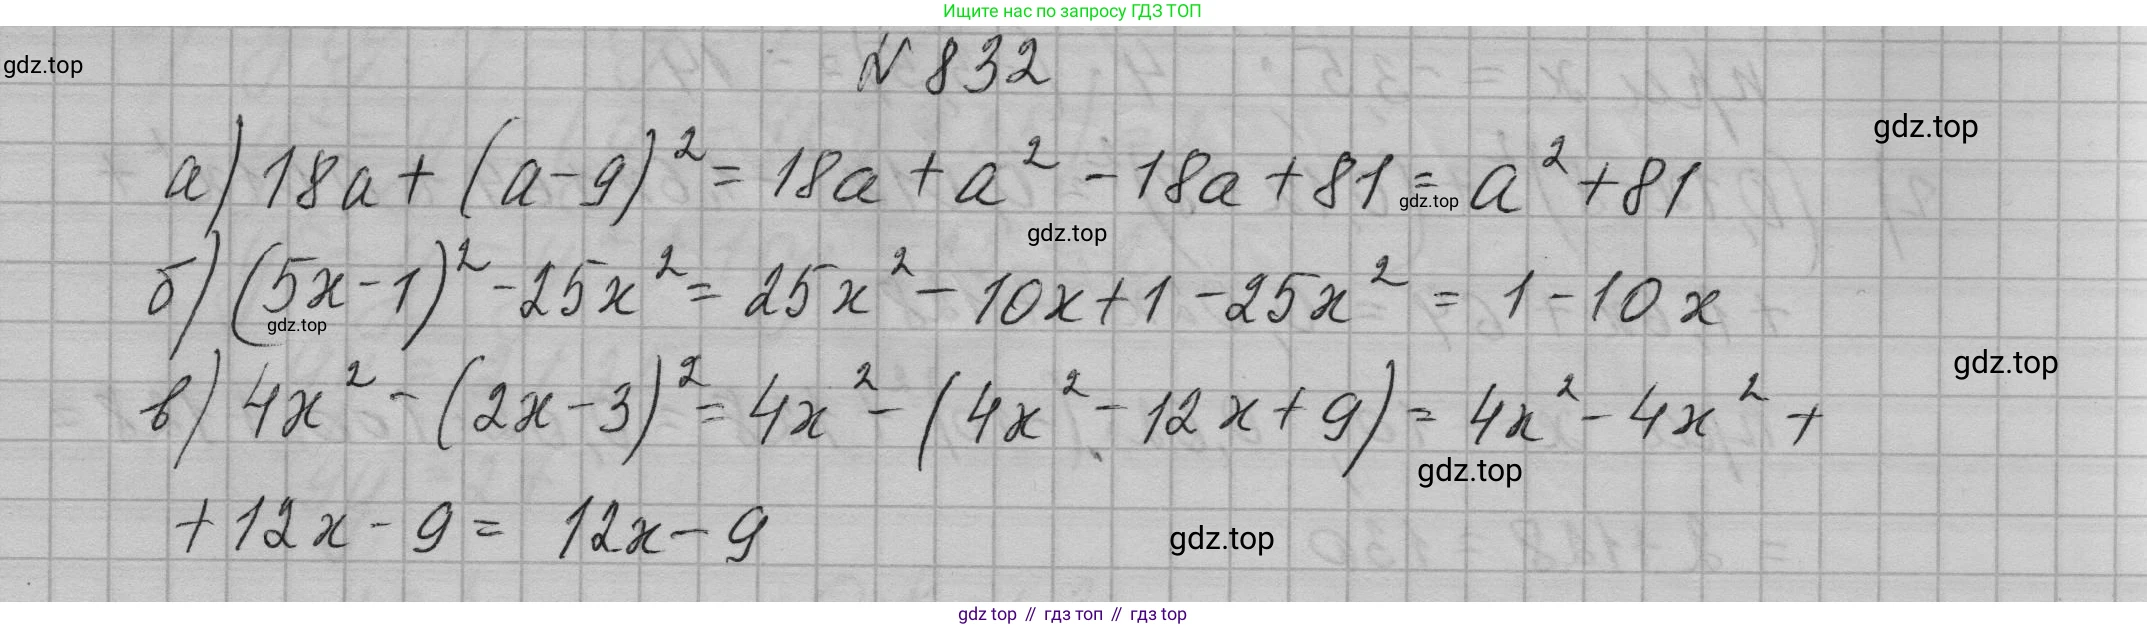 Ищите нас по запросу ГДЗ ТОП
gdz.top
№ 832
gdz.top
а) 18a + (a - 9)² = 18a + a² - 18a + 81 = a² + 81
gdz.top
gdz.top
б) (5x - 1)² - 25x² = 25x² - 10x + 1 - 25x² = 1 - 10x
gdz.top
gdz.top
в) 4x² - (2x - 3)² = 4x² - (4x² - 12x + 9) = 4x² - 4x² +
gdz.top
+ 12x - 9 = 12x - 9
gdz.top
gdz top // гдз топ // gdz.top